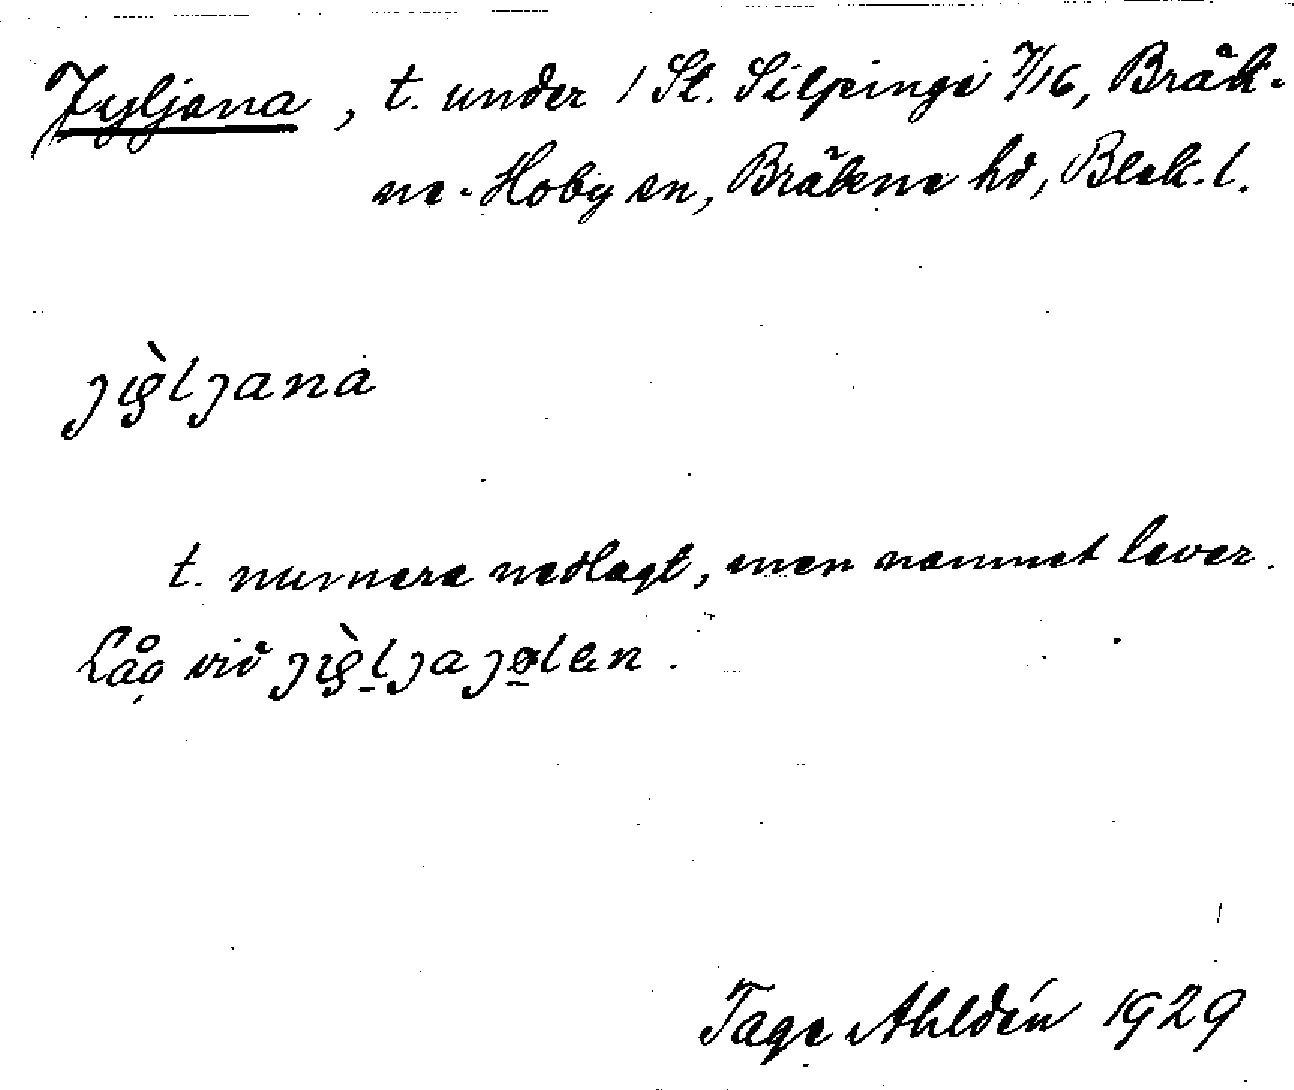 Jyljana, t. under 1 St. Silpinge 7/16, Bräk-
ne-Hoby sn, Bräkne hd, Blek. l.
t. numera nedlagt, men namnet lever.
Låg vid
Tage Ahldén 1929